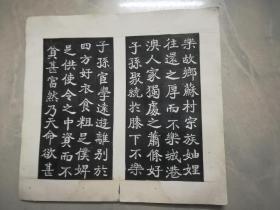 樂故鄉蘇村宗族妯娌
往還之厚而不樂城港
澳人家獨處之蕭條好
子孫聚統於膝下不樂
子孫宦學遠遊離別於
四方好衣食粗足僕婢
足供使令之中資而不
甚富然乃天命欲甚